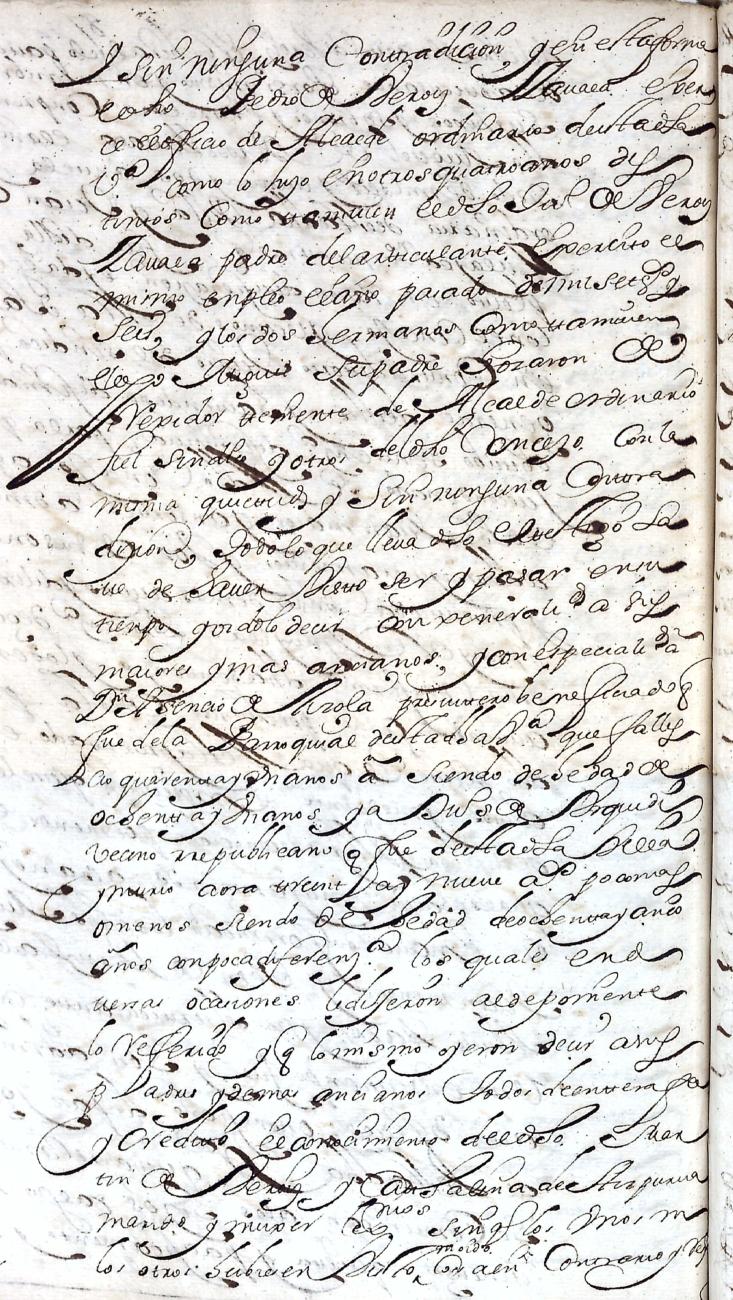 y sin ninguna Contradicion, y en esta forma
Pedro de Beroiz Zavala exer
ce el oficio de Alcalde ordinario de esta dha
Va como lo hizo en otros quatro años dis
tintos Como tamvien el dho Juan de Beroiz
Zavala padre del articulante exercito el
mismo enpleo el año pasado de mil setezs y
Seis, y los dos hermanos Como tamvien
el dho su padre Gozaron de
Rexidor theniente de Alcalde ordinario
fiel sindico y otros del dho Concejo Con la
misma quietud y Sin ninguna Contra
dizion, todo lo que lleva dho el testigo sa
ve de haver visto ser y pasar en su
tiempo y oidolo decir Con xeneralidd a sus
maiores y mas ancianos, y con especialidd a
Dn Asencio de Arola presvitero beneficiado q
fue de la Parroquial de esta dha Va que falle
cio quarenta y un años a siendo de hedad de
ochenta y un años y a Luis de Urquidi
vecino y republicano q fue de esta dha Villa
y murio aora treinta y nueve as poco mas
o menos siendo de hedad de ochenta y cinco
años con poca diferenza los quales en di
versas ocasiones le dijeron al deponente
lo Referido y q lo mismo oyeron decir a sus
Padres y demas ancianos todos de entera fee
y credito el conocimiento del dho Mar
tin de Beroiz y Cathalina de Aizpurua
marido y muxer lexmos sin q los unos ni
los otros hubiesen visto ni oido Cosa en Contrario y Res